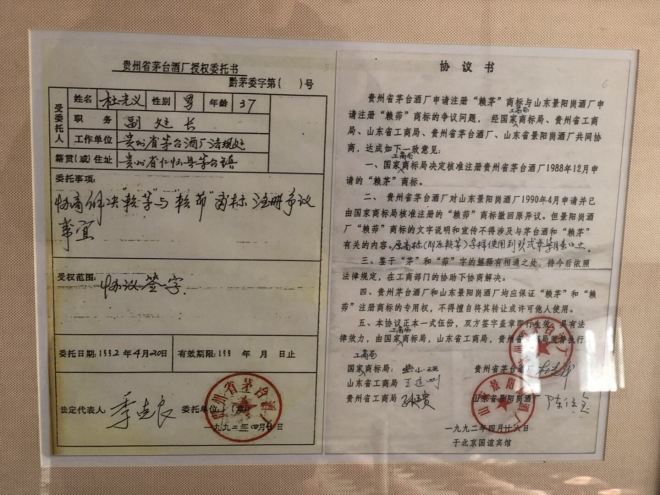 贵州省茅台酒厂授权委托书
黔茅委字第( )号
受委托人
姓名 杜光义 性别 男 年龄 37
职务 副处长
工作单位 贵州省茅台酒厂法规处
籍贯(或)住址 贵州省仁怀县茅台镇
委托事项:
协商解决"赖茅"与"赖茆"商标注册争议
事宜
受权范围:
协议签字
委托日期:1992年4月20日 有效期限:199 年 月 日止
法定代表人 季克良 委托单位:
贵州省茅台酒厂
一九九二年四月 日
协议书
贵州省茅台酒厂申请注册"赖茅"商标与山东景阳岗酒厂申
请注册"赖茆"商标的争议问题,经国家工商局商标局、贵州省工商局、
山东省工商局、贵州省茅台酒厂、山东省景阳岗酒厂共同协
商,达成如下一致意见:
一、国家工商局商标局决定核准注册贵州省茅台酒厂1988年12月申
请的"赖茅"商标。
二、贵州省茅台酒厂对山东景阳岗酒厂1990年4月申请并已
由国家商标局核准注册的"赖茆"商标撤回原异议。但景阳岗酒
厂商标的文字说明和宣传不得涉及与茅台酒和"赖茅"
有关的内容。
三、鉴于"茅"和"茆"字的解释有相通之处,待今后依照
法律规定,在工商部门的协助下协商解决。
四、贵州茅台酒厂和山东景阳岗酒厂均应保证"赖茅"和"赖
茆"注册商标的专用权,不得擅自将其转让或许可他人使用。
五、本协议正本一式伍份,双方签字盖章即行生效,具有法
律效力,由国家工商局商标局、山东省工商局、贵州省工商局监督执行
国家工商局商标局: 贵州省茅台酒厂
山东省工商局
贵州省工商局 山东省景阳岗酒厂
一九九二年四月廿八日
于北京国谊宾馆